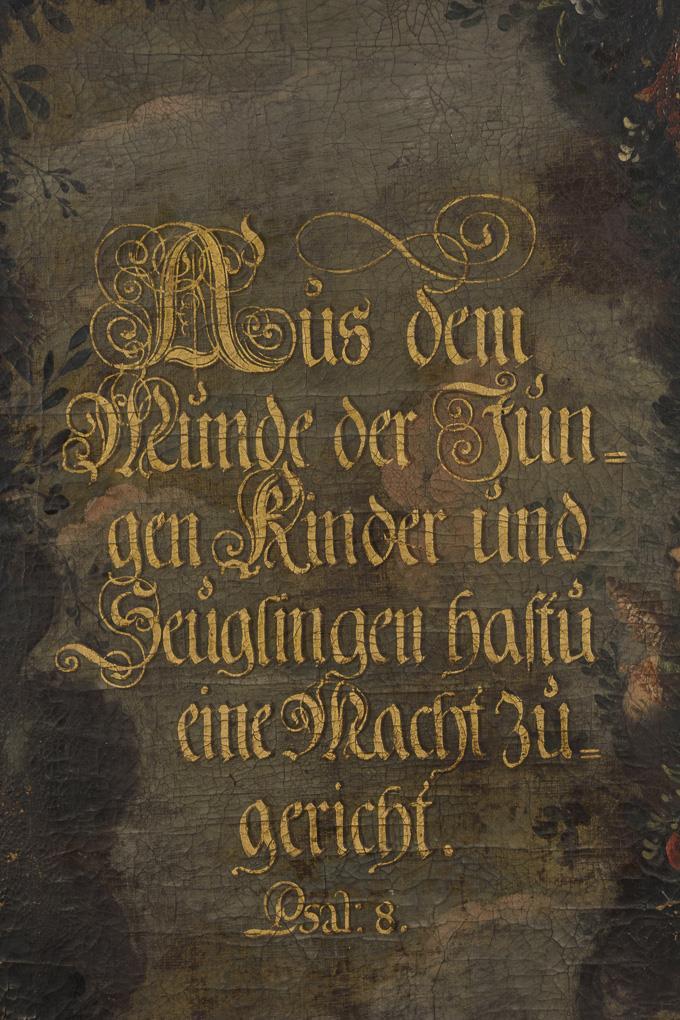 Aus dem
Munde der Jün=
gen Kinder und
Seuglingen hastu
eine Macht zu=
gericht.
Psal: 8.